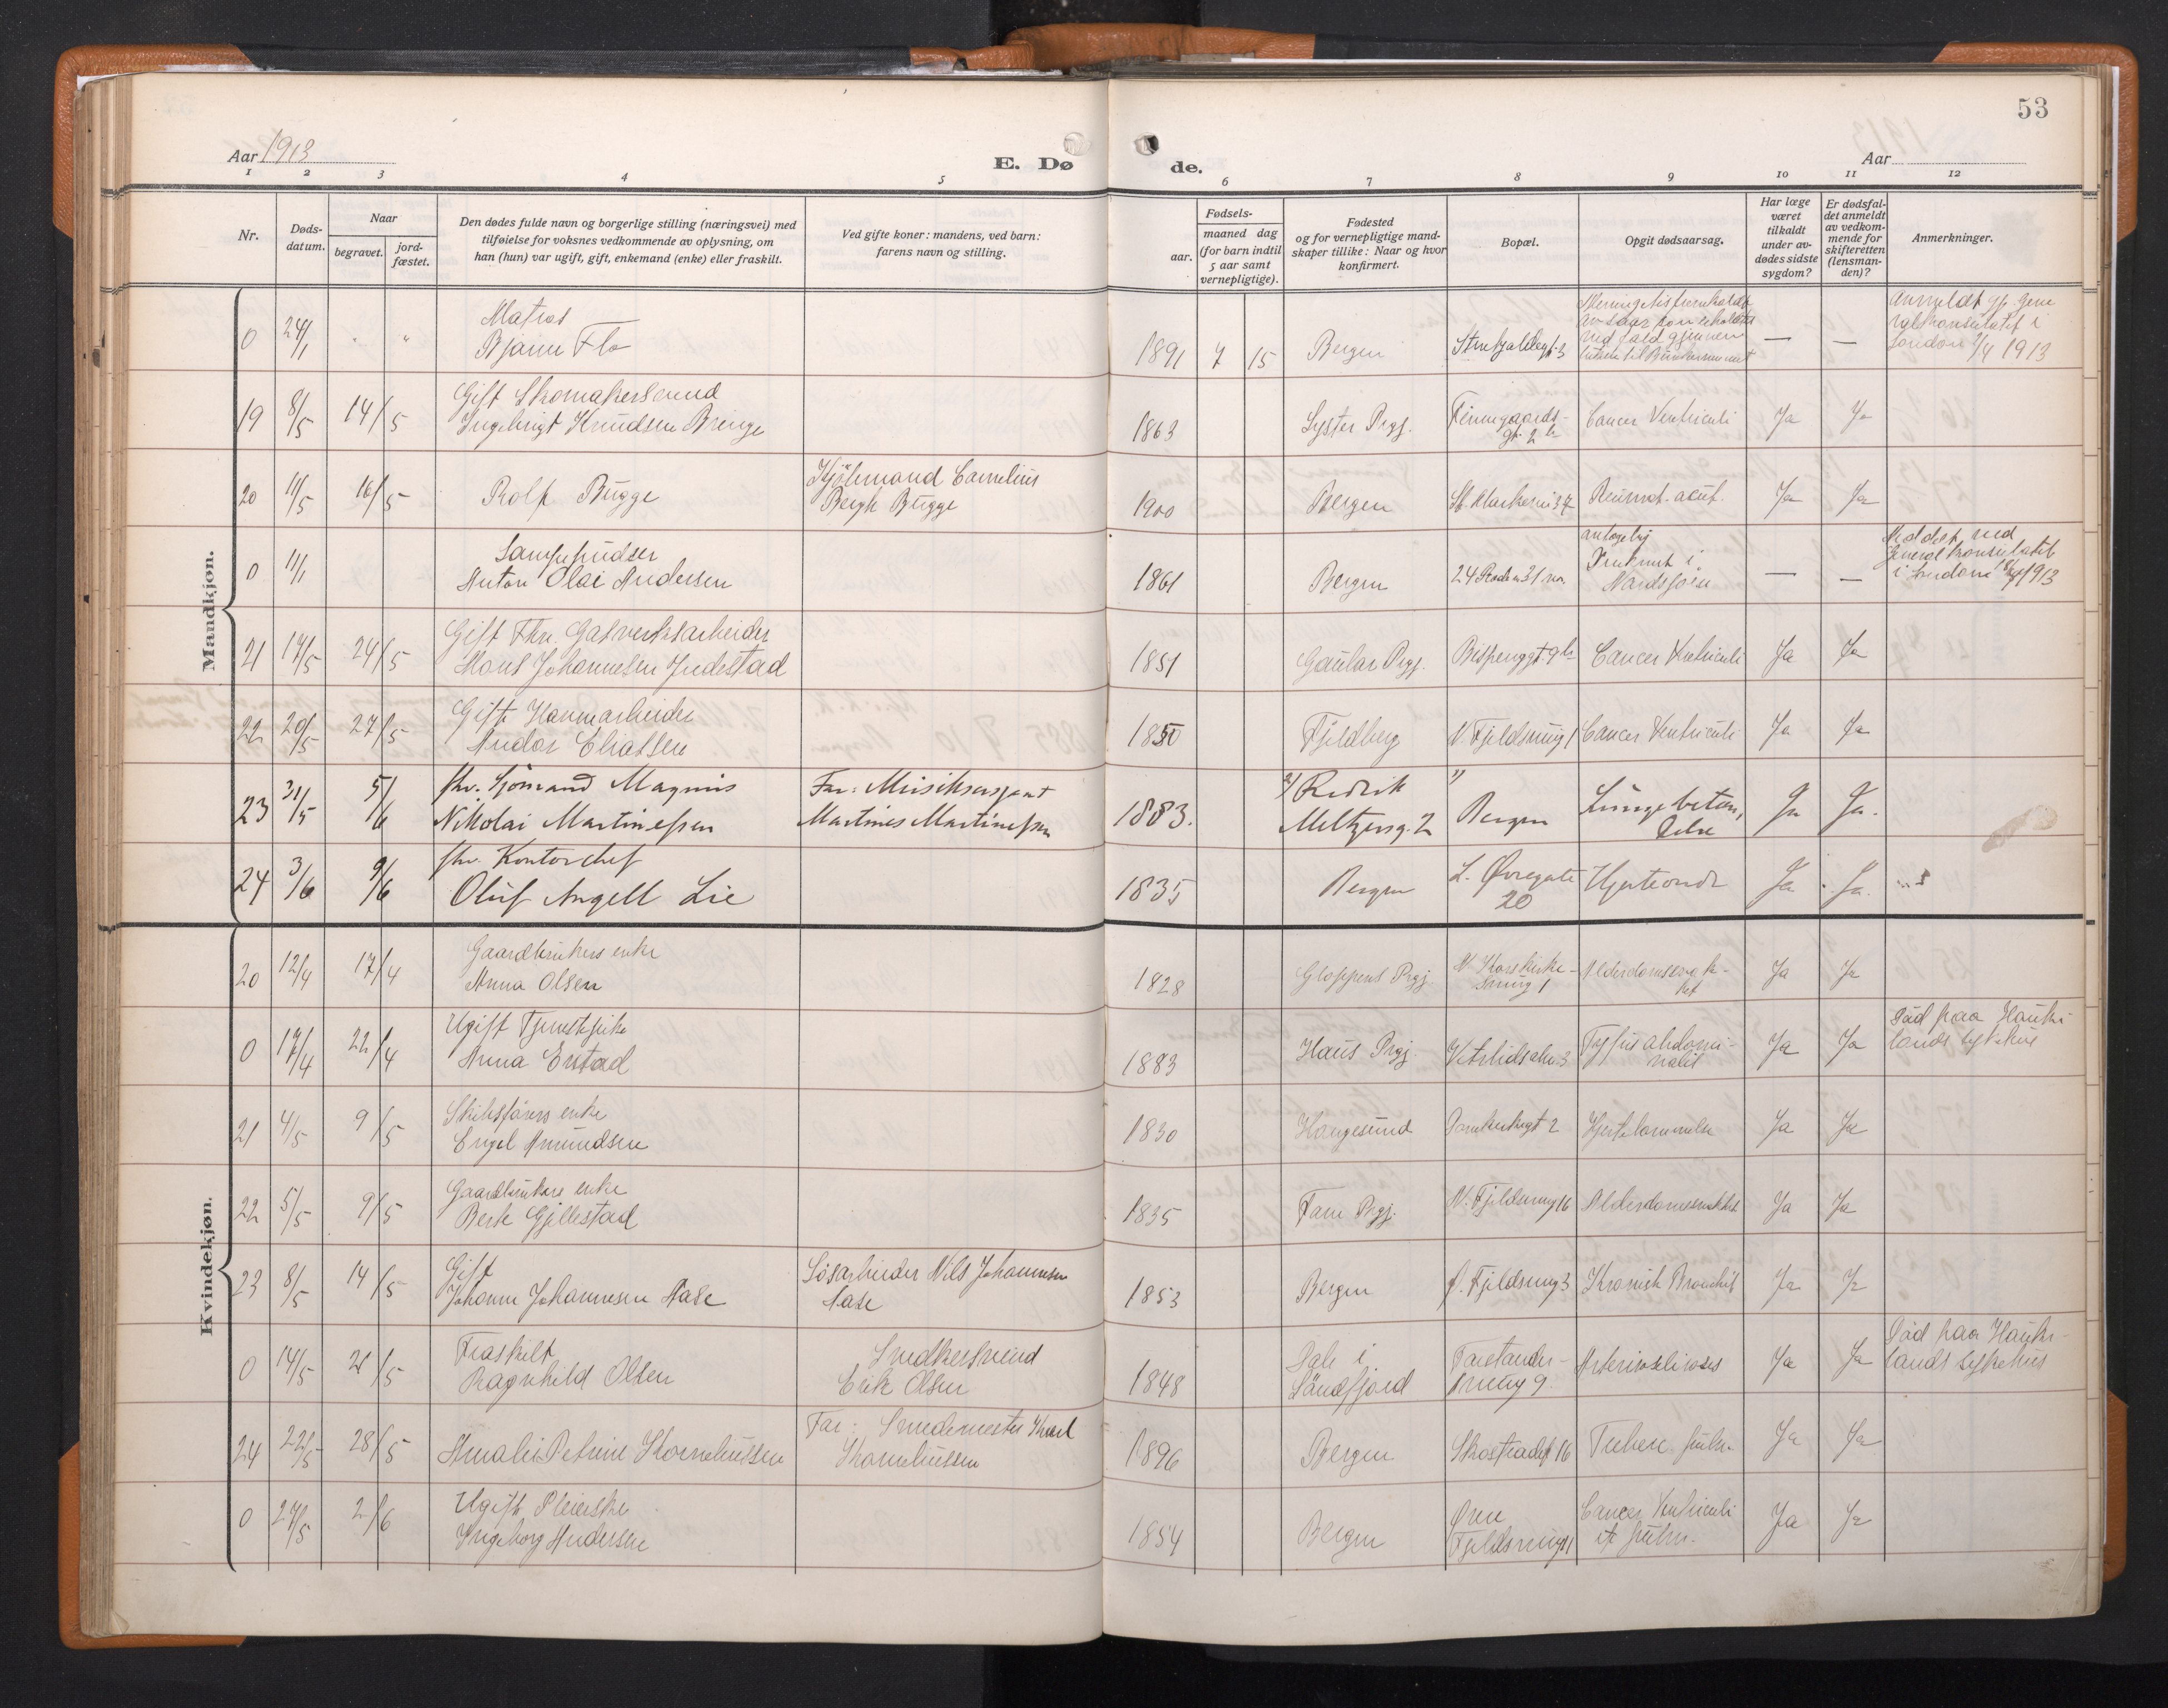 53
Aar 1913
E. Dø
de.
Aar
1 2 3 4 5 6 7 8 9 10 11 12
Nr.
Døds-
datum.
Naar
begravet.
jord-
fæstet.
Den dødes fulde navn og borgerlige stilling (næringsvei) med
tilføielse for voksnes vedkommende av oplysning, om
han (hun) var ugift, gift, enkemand (enke) eller fraskilt.
Ved gifte koner: mandens, ved barn:
farens navn og stilling.
Fødsels-
aar.
maaned dag
(for barn indtil
5 aar samt
vernepligtige).
Fødested
og for vernepligtige mand-
skaper tillike: Naar og hvor
konfirmert.
Bopæl.
Opgit dødsaarsag.
Har læge
været
tilkaldt
under av-
dødes sidste
sygdom?
Er dødsfal-
det anmeldt
av vedkom-
mende for
skifteretten
(lensman-
den)?
Anmerkninger.
Mandkjøn.
0 24/1 " " Matros
Bjarne Flo
1891 7 15 Bergen
— —
London 4 1913
19 8/5 14/5 Gift Skomakersvend
Ingebrigt Knudsen Bringe
1863 Lyster Prgj. Cancer Ventriculi Ja Ja
20 11/5 16/5 Rolf Bugge
Cornelius
Bergh Bugge
1900 Bergen Reumat. acut. Ja Ja
0 11/1
Anton Olai Andersen
1861 Bergen
antagelig
Druknet i
Nordsjøen
— —
1913
21 17/5 24/5 Gift Gasverksarbeider
Mons Johannesen Indestad
1851 Gaular Prgj. Cancer Ventriculi Ja Ja
22 20/5 27/5 Gift Havnearbeider
Andor Eliassen
1850 Fjeldberg N. Fjeldsmug 1 Cancer Ventriculi Ja Ja
23 31/5 5/6 fhv. Sjömand Magnus
Nikolai Martinessen
Far: Musiksersjant
Martines Martinessen
1883.
Meltzersg. 2
Bergen
Ja Ja.
24 3/6 9/6 fhv. Kontorchef
Oluf Angell Lie
1835 Bergen L. Øvregate
20
Hjerteonde Ja Ja.
Kvindekjøn.
20 12/4 17/4 Gaardbrukers enke
Anna Olsen
1828 Gloppens Prgj. N. Korskirke-
smug 1
Alderdomssvak-
het
Ja Ja
0 17/4 22/4 Ugift Tjenestepike
Anna Erstad
1883 Haus Prgj. Vetrlidsalm. 3 Tyfus abdomi-
nalis
Ja Ja
Død paa Hauke-
lands sykehus
21 4/5 9/5 Skibsførers enke
Engel Amundsen
1830 Haugesund Domkirkegt 2 Hjertelammelse Ja Ja
22 5/5 9/5 Gaardbrukers enke
Berte Gjellestad
1835 Fane Prgj. N. Fjeldsmug 16 Ja Ja
23 8/5 14/5 Gift
Johanne Johannesen Aase
Løsarbeider Nils Johannesen
Aase
1853 Bergen Ø. Fjeldsmug 3 Kronisk Bronchit Ja Ja
0 14/5 21/5 Fraskilt
Ragnhild Olsen
Snedkersvend
Erik Olsen
1848 Dale i
Søndfjord
smug 9
Arterioselerose Ja Ja
Død paa Hauke-
lands sykehus
24 22/5 28/5 Amalie Petrine Korneliussen
Far: Smedemester Karl
Korneliussen
1896 Bergen Skostrædet 16 Tuberc. pulm. Ja Ja
0 27/5 2/6 Ugift Pleierske
Ingeborg Andersen
1854 Bergen Øvre
Fjeldsmug 1
Cancer Ventriculi
et pulm.
Ja Ja